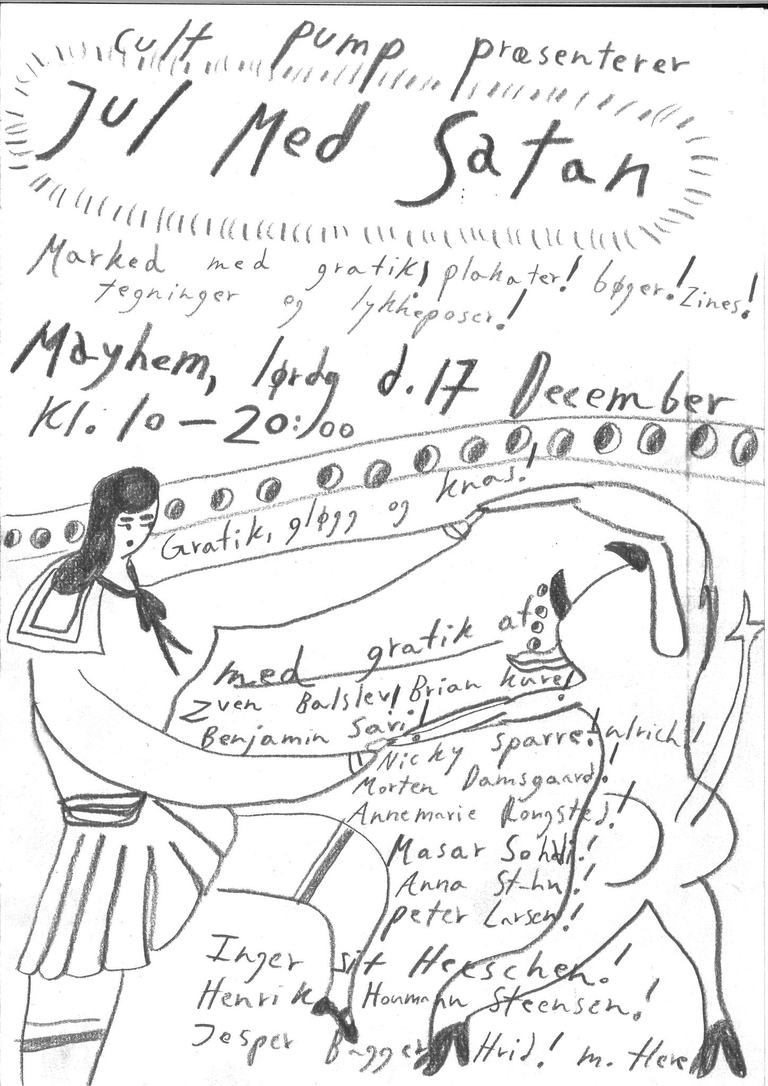 cult pump præsenterer
Jul Med Satan
Marked med grafik, plakater! bøger! Zines!
tegninger og lykkeposer!
Mayhem, lørdg d. 17 December
Kl. 10 – 20:00
Grafik, gløgg og knas!
med grafik af
Zven Balslev! Brian kure!
Benjamin Savi!
Nicky Sparre! ulrich!
Morten Damsgaard!
Annemarie Rongsted!
Masar Sohdi!
Anna
Peter Larsen!
Inger sif Heeschen!
Henrik Houmann Steensen!
Jesper Bagger Hvid! m. flere